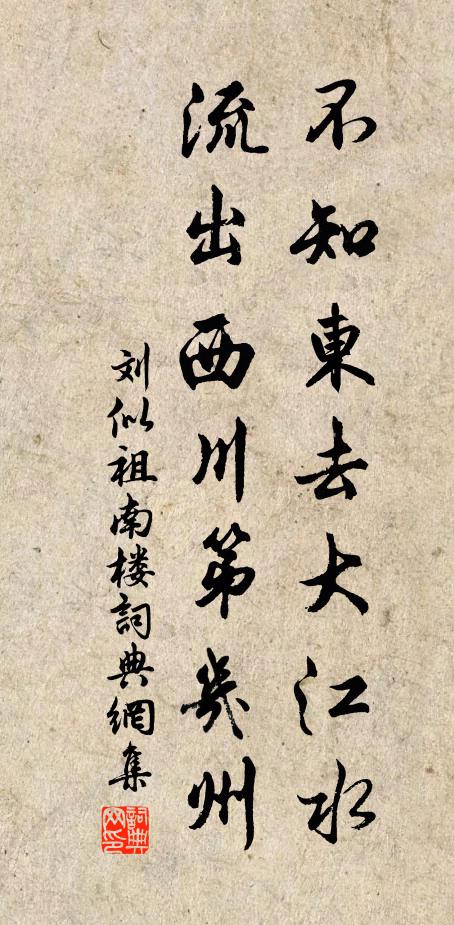 不知東去大江水
流出西川第幾州
刘似祖南楼詞典網集
詞典网印